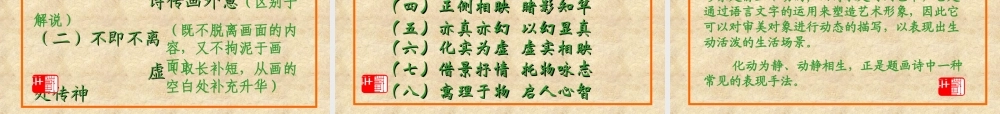 诗传画外意（区别于
解说）
（二）不即不离
（既不脱离画面的内
容，又不拘泥于画
面）
虚
（取长补短，从画的
空白处补充升华）
处传神
（四）正侧相映 睹影知竿
（五）亦真亦幻 以幻显真
（六）化实为虚 虚实相映
（七）借景抒情 托物咏志
（八）寓理于物 启人心智
通过语言文字的运用来塑造艺术形象，因此它
可以对审美对象进行动态的描写，以表现出生
动活泼的生活场景。
化动为静、动静相生，正是题画诗中一种
常见的表现手法。